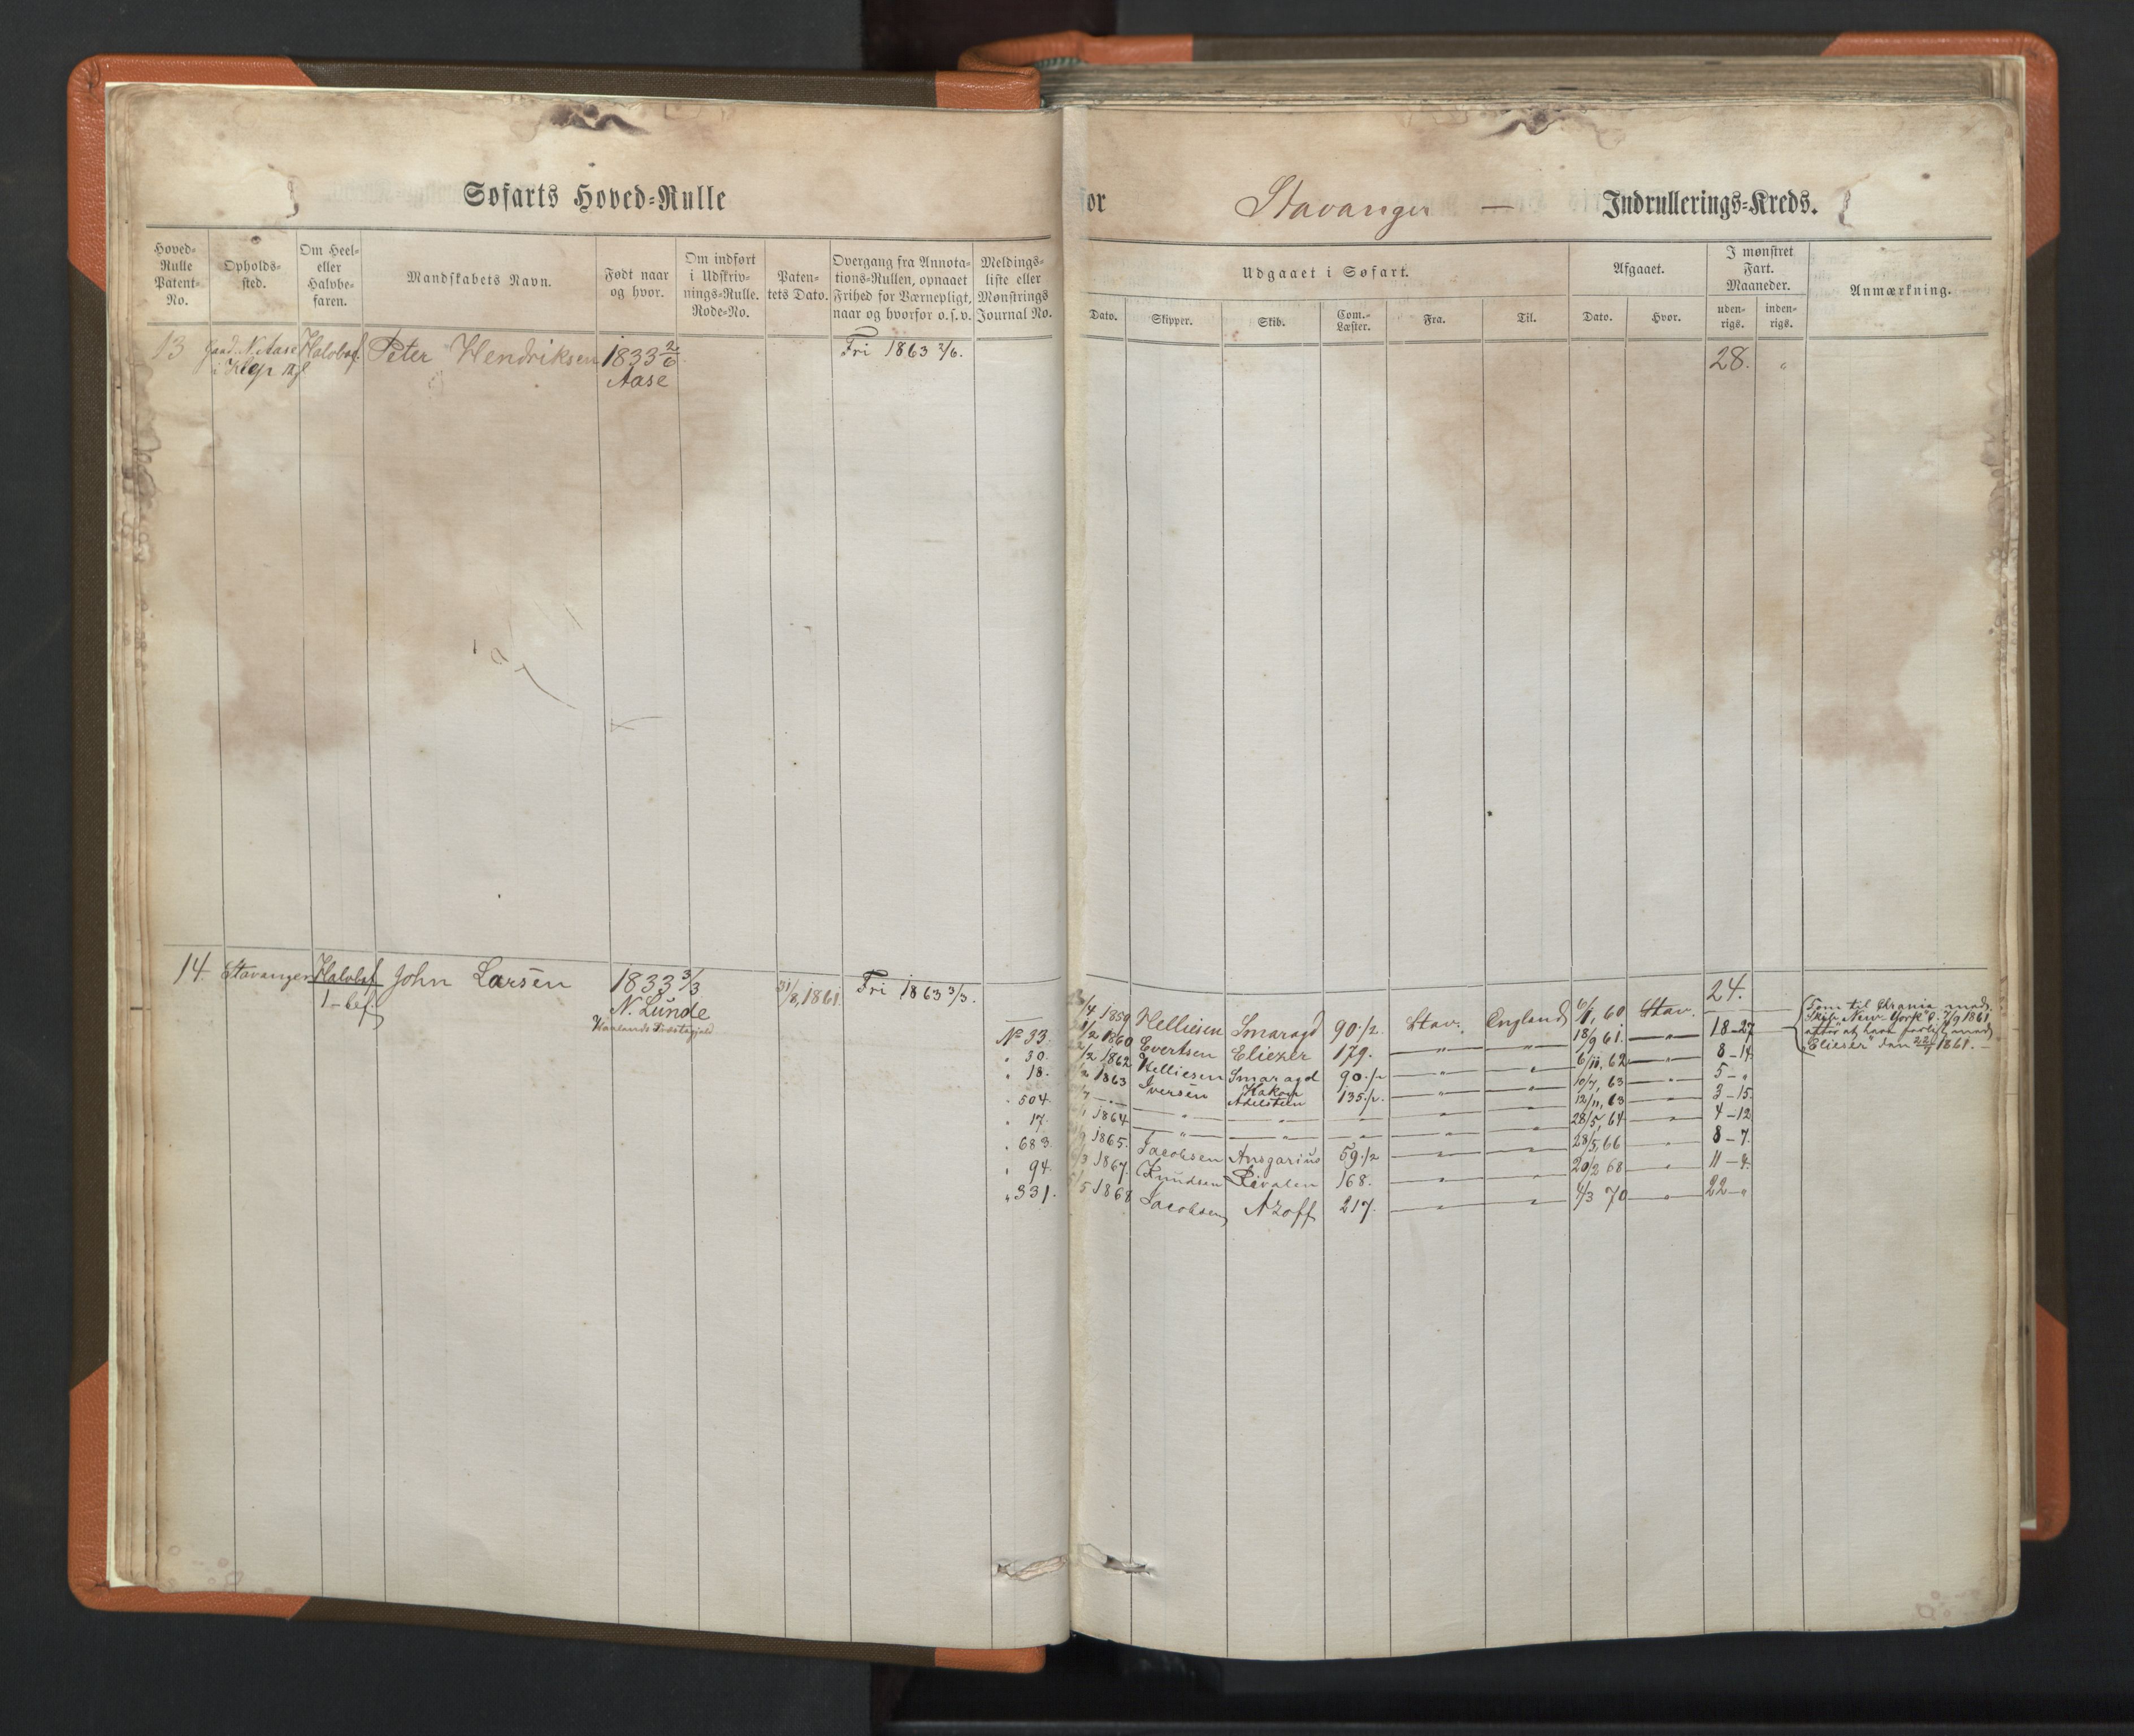 Søfarts Hoved-Rulle
for Stavanger — Indrullerings-Kreds.
Hoved-Rulle Patent-No.
Opholds-sted.
Om Heel- eller Halvbe-faren.
Mandskabets Navn.
Født naar og hvor.
Om indført i Udskriv-nings-Rulle. Rode-No.
Paten-tets Dato.
Overgang fra Annota-tions-Rullen, opnaaet Frihed for Værnepligt, naar og hvorfor o.s.v.
Meldings-liste eller Mønstrings Journal No.
Udgaaet i Søfart.
Dato.
Skipper.
Skib.
Com.-Læster.
Fra.
Til.
Afgaaet.
Dato.
Hvor.
I mønstret Fart. Maaneder.
uden-rigs.
inden-rigs.
Anmærkning.
13 Gaad. N. Aase Halvbef. Peter Hendriksen 1833 2/6 Fri 1863 2/6. 28. "
i Klep
Aase
14. Stavanger Halvbef John Larsen 1833 3/3 31/8, 1861. Fri 1863 3/3. 24.
1-bef.
N. Lunde
No 33. /4 1859 Helliesen Smaragd 90 1/2. Stav. England 60 Stav.
" 30. /2 1860 Evertsen Eliezer 179. — " — — " — 18/9 61. — " — 18-27
" 18. /2 1862 Helliesen Smaragd 90 1/2 — " — " 6/11, 62 — " — 8-14
" 504. 1863 Iversen Hakon Adelsteen 135 1/2. — " — " 10/7, 63 — " — 5 - "
" 17. — " — — " — — " — — " — 12/11, 63 — " — 3-15.
" 683. 1864 — " — — " — — " — 28/5, 64 — " — 4-12
" 94. 1865. Jacobsen Ansgarius 59 1/2 — " — " 28/5, 66 — " — 8-7.
" 331. /3 1867. Knudsen Rivalen 168. — " — " 20/2 68 — " — 11-
5 1868 Jacobsen Azoff 217. — " — " 4/3 70 — " — 22 - "
Skib "New-York" d. 7/9 1861
efter at have forlist med
"Elieser" den 22/7 1861.